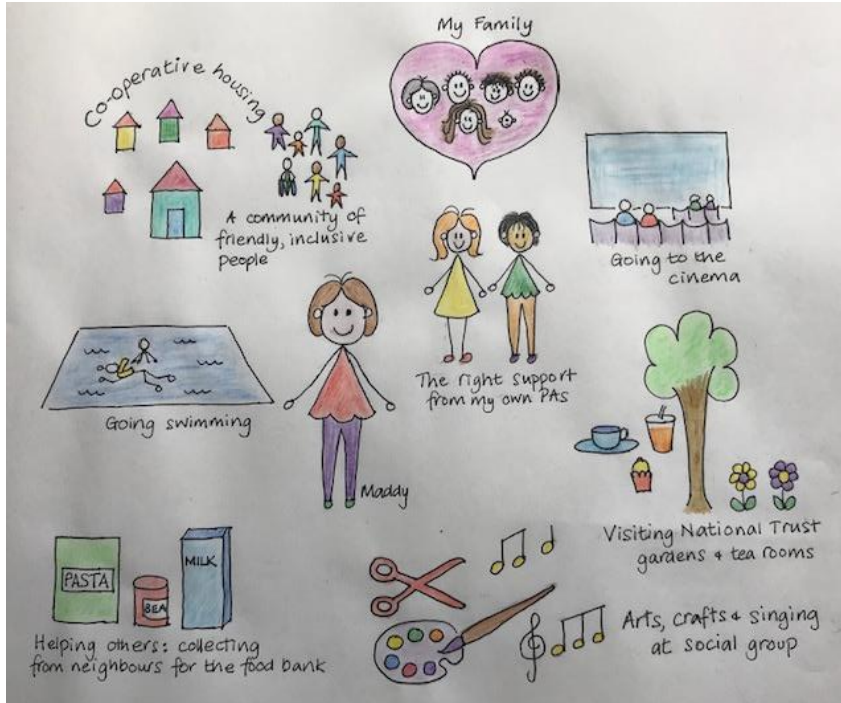 My Family
Co-operative housing
A community of
friendly, inclusive
people
Going to the
cinema
The right support
from my own PAS
Going swimming
Maddy
Visiting National Trust
gardens & tea rooms
PASTA
BEA
MILK
Helping others: collecting
from neighbours for the food bank
Arts, crafts & singing
at social group